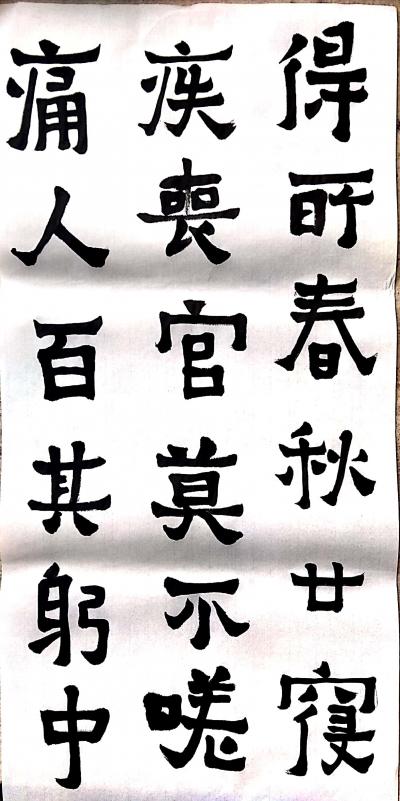 得所春秋廿寑
疾喪官莫不嗟
痛人百其躬中